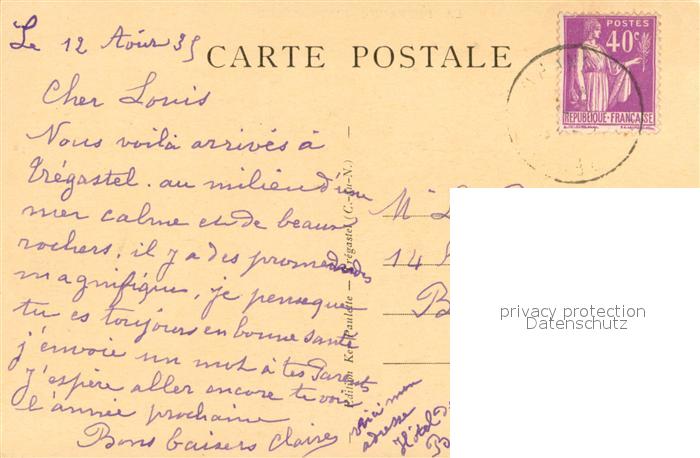 Le 12 Août 35
CARTE POSTALE
POSTES
40c
REPUBLIQUE·FRANÇAISE
Cher Louis
Nous voilà arrivés à
Trégastel. au milieu d'une
mer calme et de beaux
rochers, il y a des promenades
magnifique, je pense que
tu es toujours en bonne santé
j'envoie un mot à tes Parents
J'espère aller encore te voir
l'année prochaine
Bons baisers Claires
Edition Ker Paulette — Trégastel (C.-du-N.)
M
14
B
voici mon
adresse
Hôtel
B
privacy protection
Datenschutz